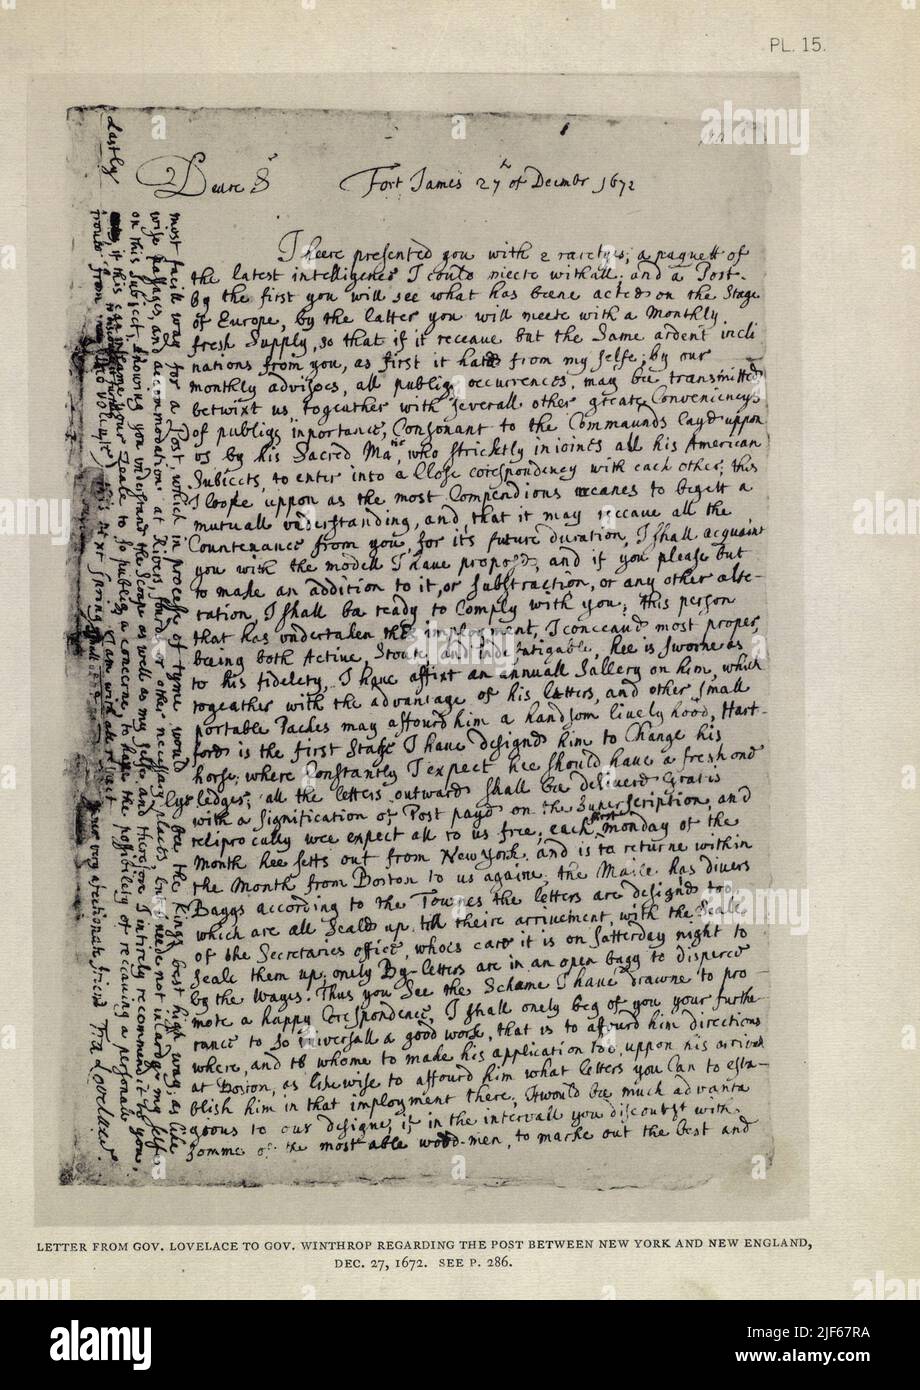 PL. 15.
Deare Sr
Fort James 27th of Decmbr 1672
I heere presented you with 2 rareties, a paquett of
the latest intelligence I could meete withall, and a Post.
by the first you will see what has beene acted on the Stage
of Europe, by the latter you will meete with a Monthly
fresh Supply, so that if it receave but the Same ardent incli
nations from you, as first it hath from my selfe, by our
monthly advisoes, all publiq occurrences, may bee transmitted
betwixt us, togeather with severall other greate Conveniencys
of publiq inportance, Consonant to the Commaunds layd uppon
us by his Sacred Matie, who strickly injoints all his American
Subiects, to enter into a Close corespondency with each other, this
I looke uppon as the most Compendious meanes to begett a
mutuall understanding, and, that it may receave all the
Countenance from you, for its future duration, I shall acquaint
you with the modell I have proposd, and if you please but
to make an addition to it, or substraction, or any other alte-
ration, I shall be ready to Comply with you; this person
that has undertaken the imployment, I conceaud most proper,
being both Active, Stoute, and indefatigable, hee is sworne as
to his fidelety, I have affixt an annuall Sallery on him, which
togeather with the advantage of his letters, and other small
portable Packes may affourd him a handsom livelyhood, Hart-
ford is the first Stage I have designd him to Change his
horse, where Constantly I expect hee should have a fresh one
lye ledges; all the letters outward shall be deliverd Gratis
with a signification of Post payd on the Superscription, and
reciprocally wee expect all to us free, each first monday of the
Month hee setts out from New York, and is to returne within
the Month from Boston to us againe, the Maile has divers
Baggs according to the Townes the letters are designd too,
which are all Seald up till theire arrivement, with the Seale
of the Secretaries office, whoes care it is on Satterday night to
Seale them up, onely By-letters are in an open bagg to disperce
by the Wayes. Thus you See the Schame I have drawne to pro
mote a happy Corespondence, I shall onely beg of you your furthe-
rance to so universall a good work, that is to affourd him directions
where, and to whome to make his application too, uppon his arrivall
at Boston, as likewise to affourd him what letters you Can to esta-
blish him in that imployment there, It would be much advanta
gious to our designe, if in the intervall you discoubst with
Somme of the most able wood-men, to marke out the best and
most facill way for a Post, which in processe of tyme would bee the Kings best high way; as like
wise passages, and accommodation at Rivers, fourds or other necessary places, but I neede not inlardge my self
on this Subject, knowing you understand the Scope as well as my selfe, and therefore I intirely recommend it to you,
Lastly
if this can inflame your Zeale to so publiq a concerne, to hope the possibility of receaving a personale
I am with all respect
your very affectionate friend Fra Lovelace.
LETTER FROM GOV. LOVELACE TO GOV. WINTHROP REGARDING THE POST BETWEEN NEW YORK AND NEW ENGLAND,
DEC. 27, 1672. SEE P. 286.
alamy
Image ID: 2JF67RA
www.alamy.com